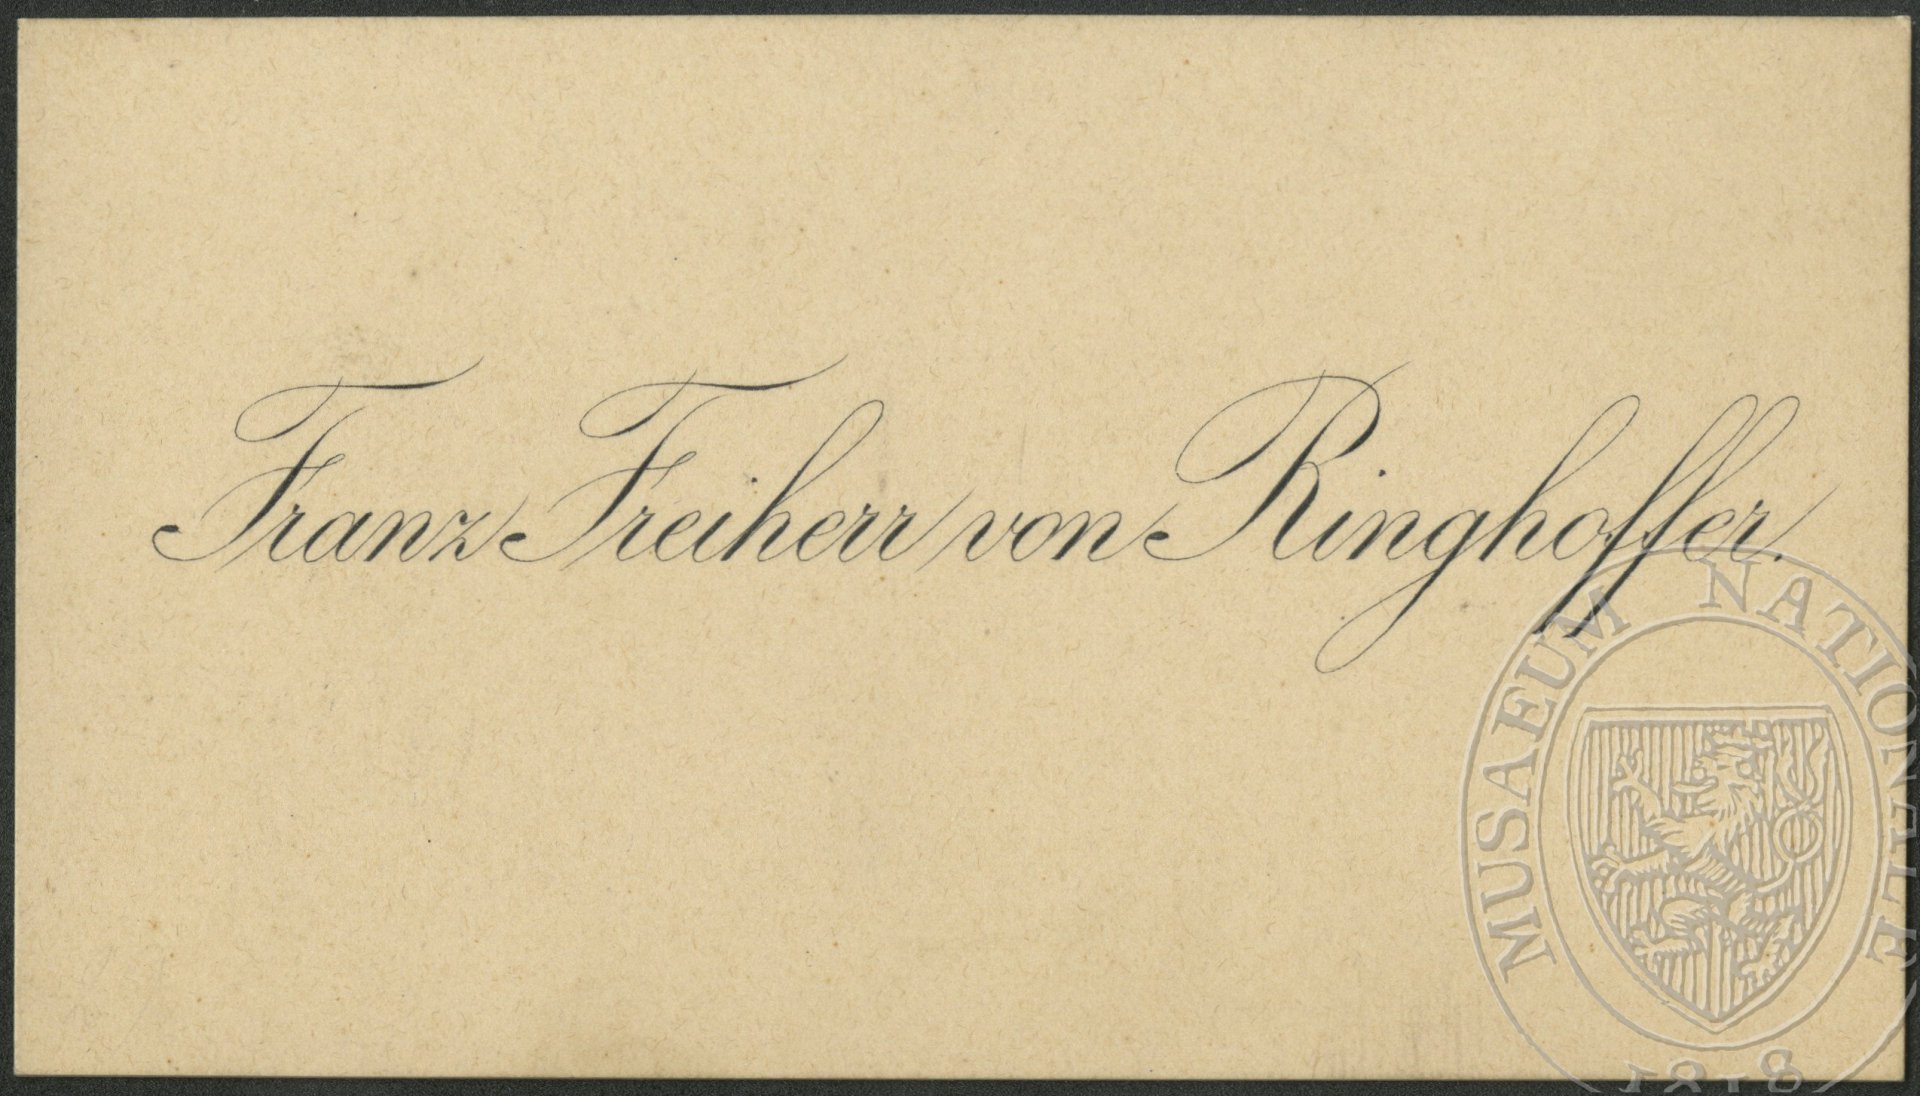 Franz Freiherr von Ringhoffer.
MUSAEUM NATIONALE
1818